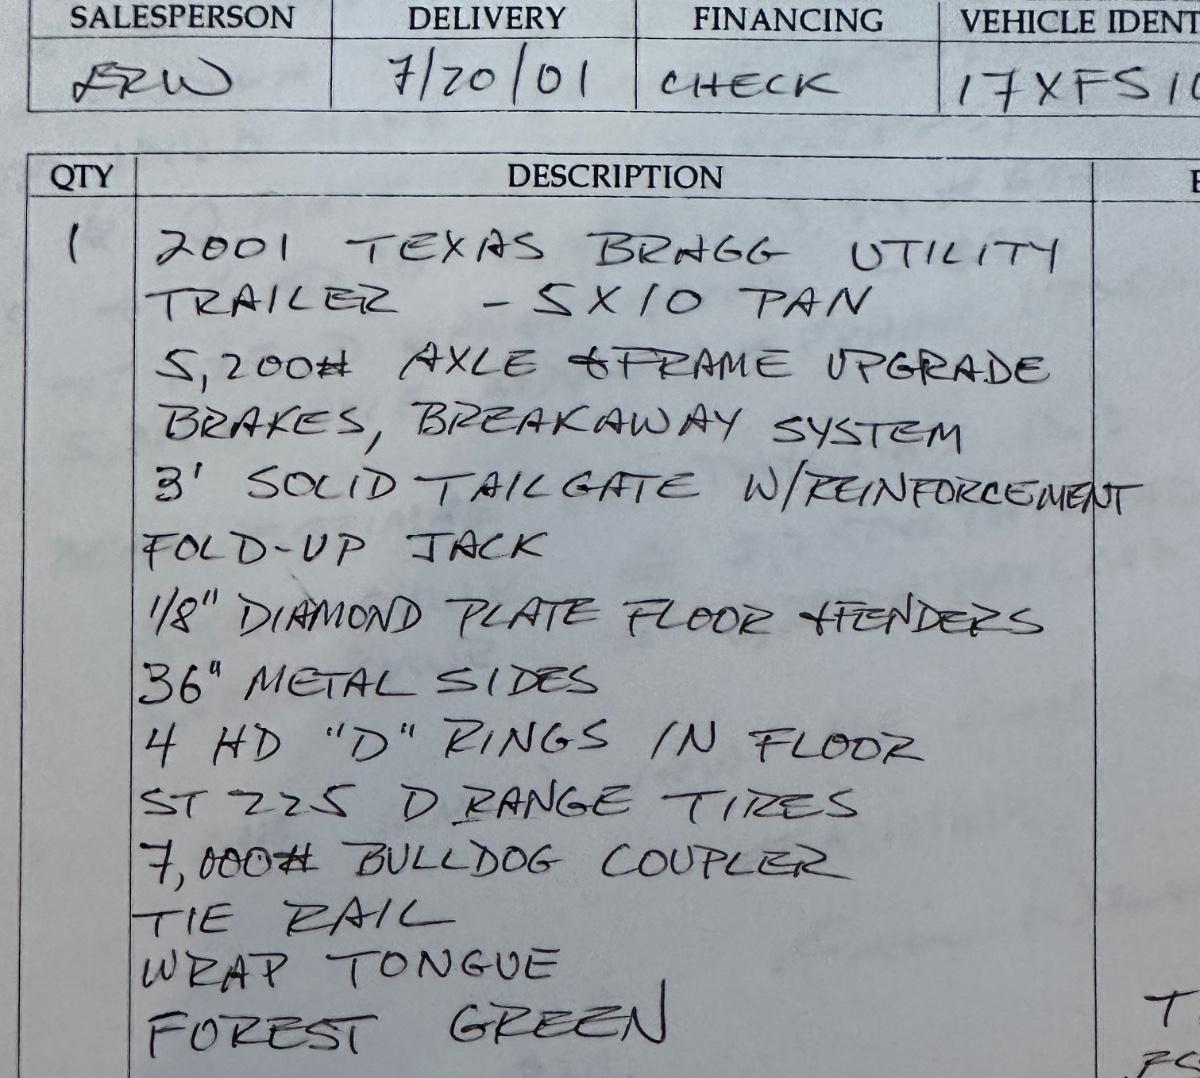 SALESPERSON DELIVERY FINANCING VEHICLE IDENT
ERW 7/20/01 CHECK 17XFS10
QTY DESCRIPTION
1 2001 TEXAS BRAGG UTILITY
TRAILER - 5X10 PAN
5,200# AXLE & FRAME UPGRADE
BRAKES, BREAKAWAY SYSTEM
3' SOLID TAILGATE W/REINFORCEMENT
FOLD-UP JACK
1/8" DIAMOND PLATE FLOOR & FENDERS
36" METAL SIDES
4 HD "D" RINGS IN FLOOR
ST 225 D RANGE TIRES
7,000# BULLDOG COUPLER
TIE RAIL
WRAP TONGUE
FOREST GREEN